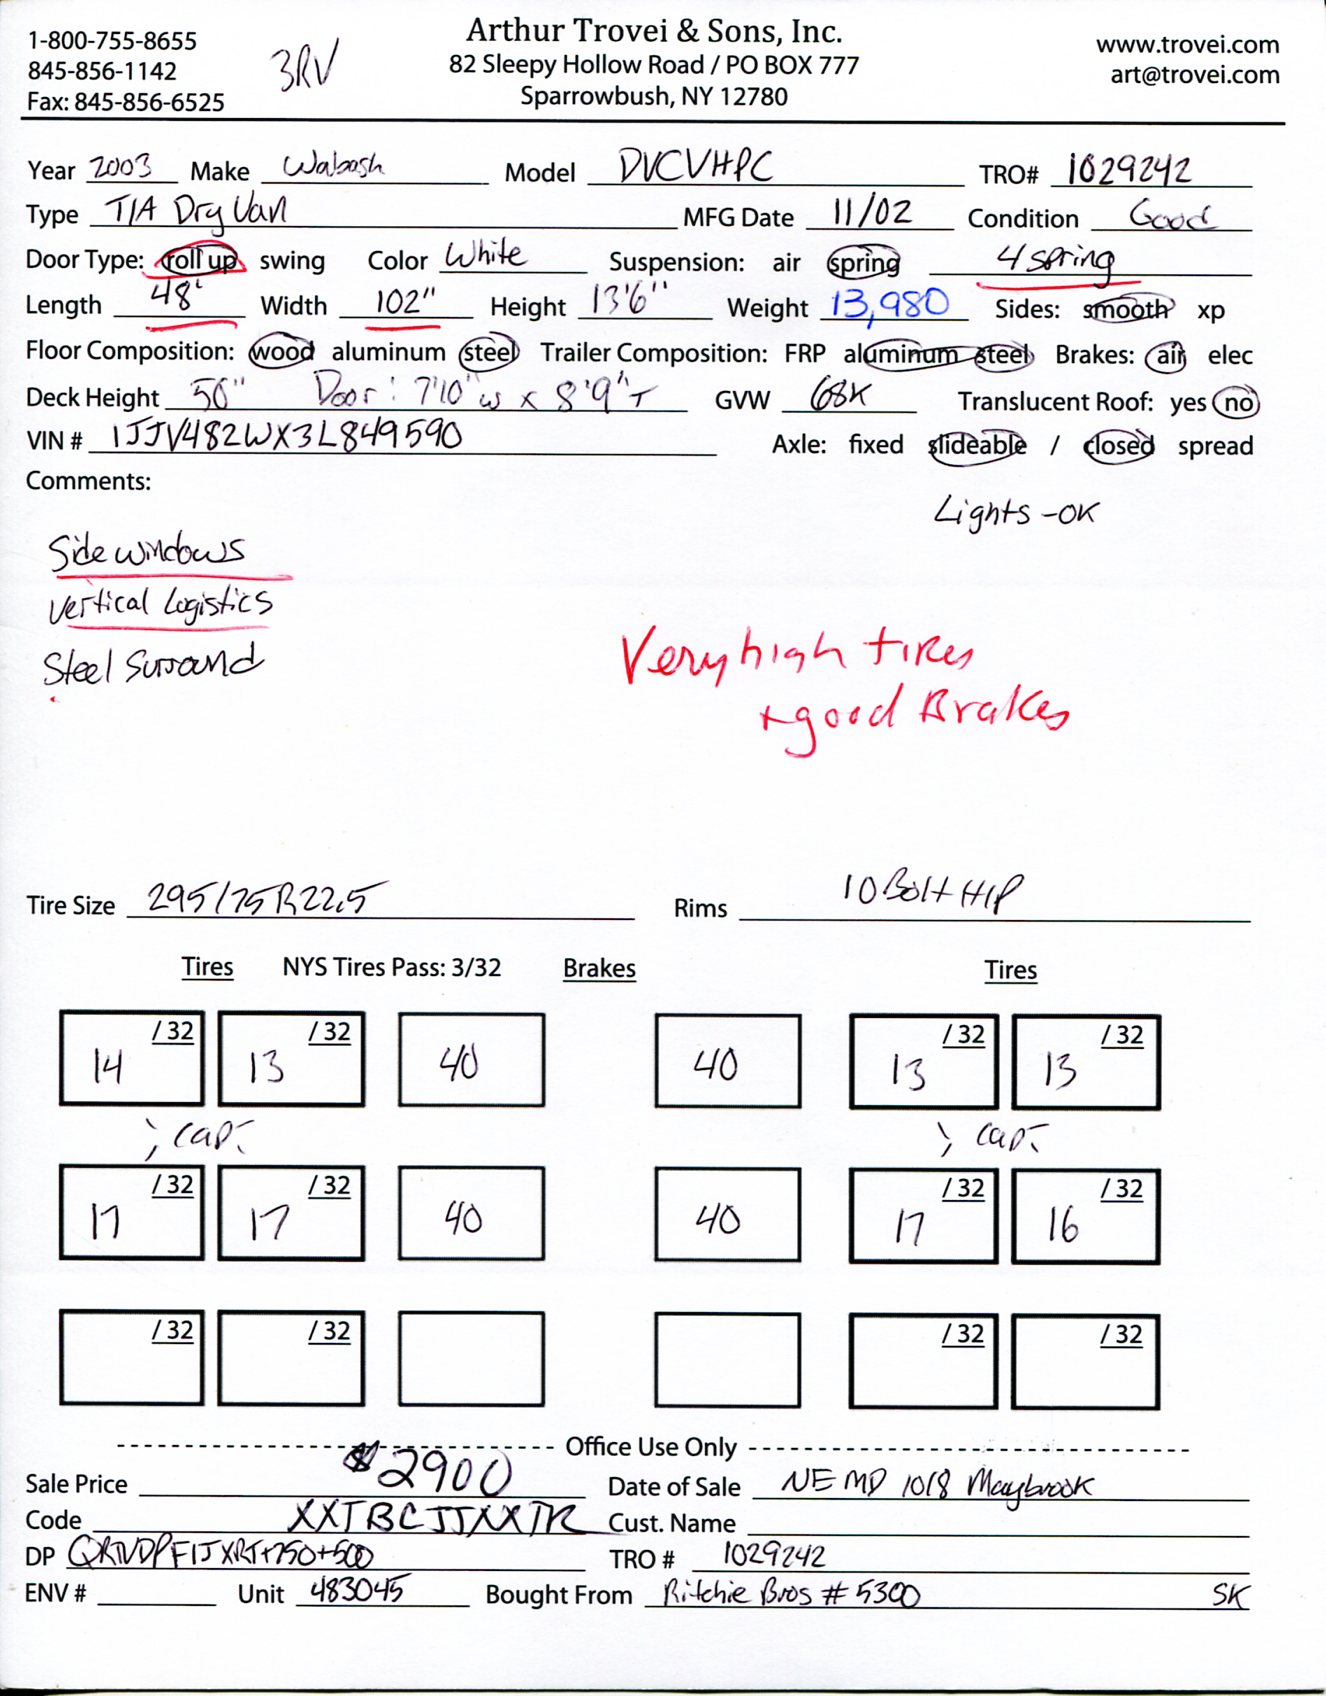 Arthur Trovei & Sons, Inc.
1-800-755-8655 82 Sleepy Hollow Road / PO BOX 777 www.trovei.com
845-856-1142 3RV art@trovei.com
Fax: 845-856-6525 Sparrowbush, NY 12780
Year 2003 Make Wabash Model DVCVHPC TRO# 1029242
Type T/A Dry Van MFG Date 11/02 Condition Good
Door Type: roll up swing Color White Suspension: air spring 4 spring
Length 48' Width 102" Height 13'6" Weight 13,980 Sides: smooth xp
Floor Composition: wood aluminum steel Trailer Composition: FRP aluminum steel Brakes: air elec
Deck Height 50" Door: 7'10"w x 8'9"T GVW 68K Translucent Roof: yes no
VIN # 1JJV482WX3L849590 Axle: fixed slideable / closed spread
Comments:
Lights - OK
Side windows
Vertical Logistics
Steel Surround
Very high tires
+ good Brakes
Tire Size 295/75R22.5 Rims 10 Bolt H/P
Tires NYS Tires Pass: 3/32 Brakes Tires
14 /32 13 /32 40 40 13 /32 13 /32
> cap. > cap.
17 /32 17 /32 40 40 17 /32 16 /32
/32 /32 /32 /32
Office Use Only
Sale Price $2900 Date of Sale NE MD 10/8 Maybrook
Code XXTBCJJXXTR Cust. Name
DP +750+500 TRO # 1029242
ENV # Unit 483045 Bought From Ritchie Bros # 5300 SK